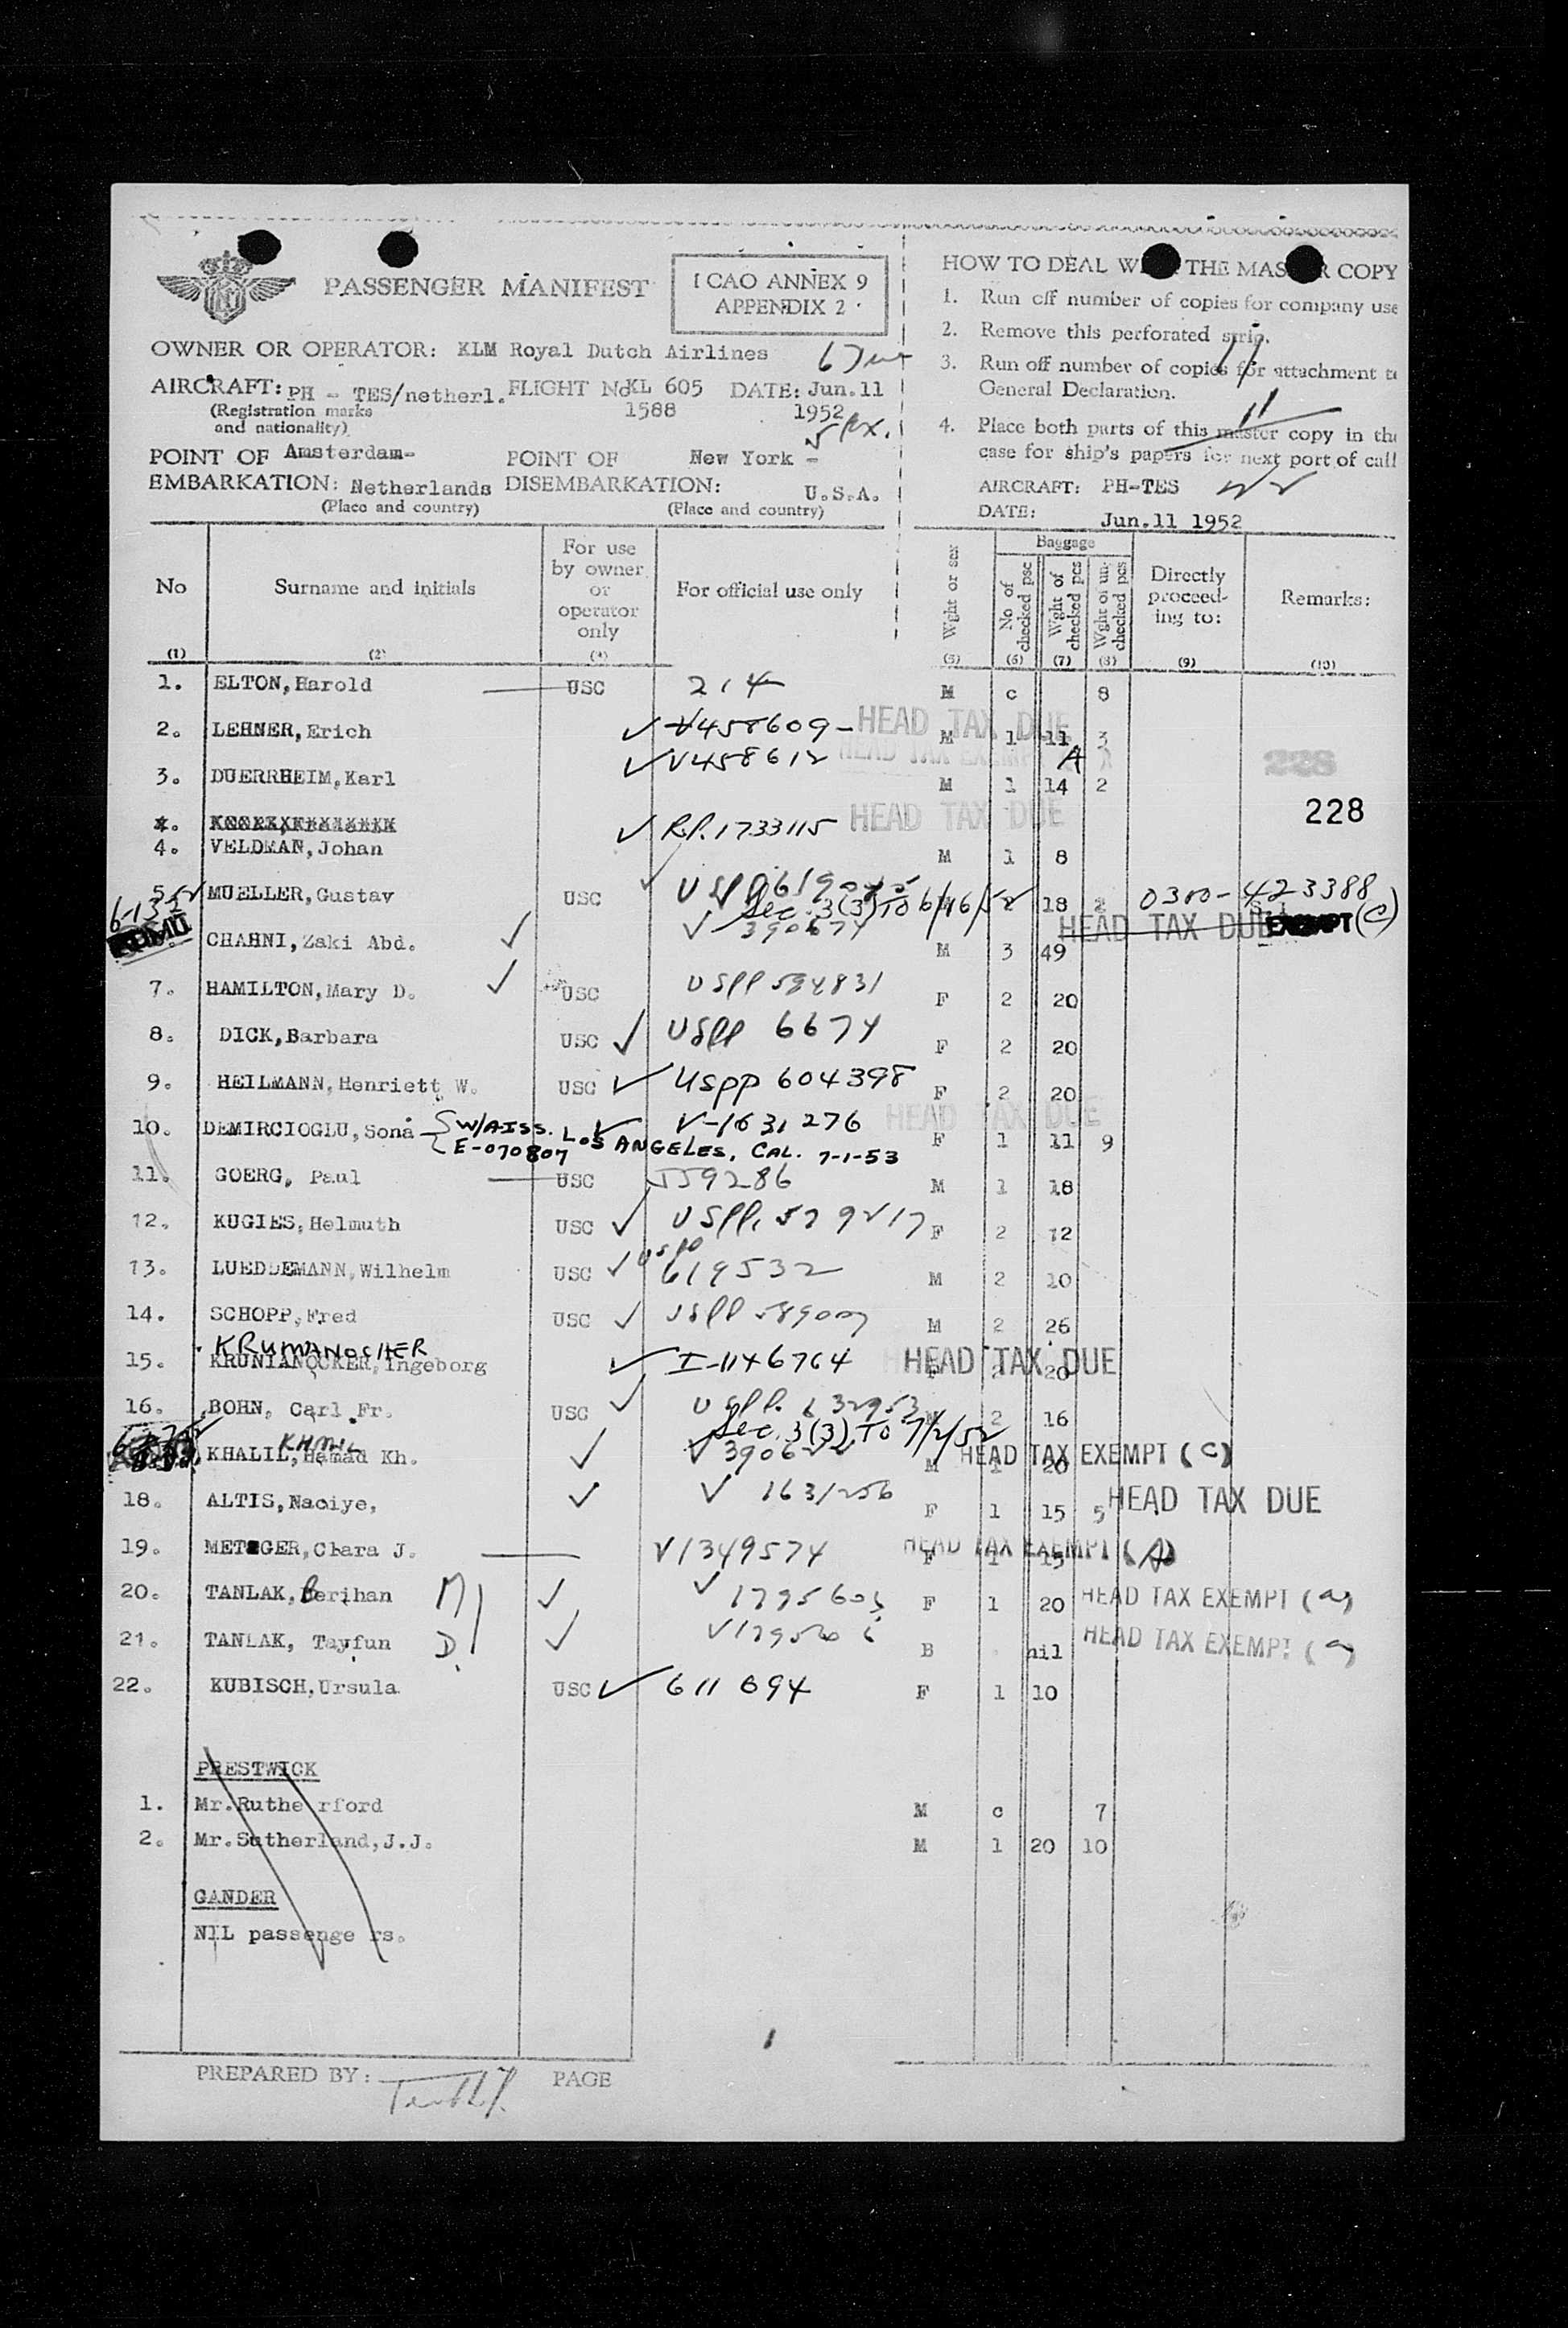 PASSENGER MANIFEST
ICAO ANNEX 9
APPENDIX 2
OWNER OR OPERATOR: KLM Royal Dutch Airlines
AIRCRAFT: PH - TES/netherl. FLIGHT No KL 605 DATE: Jun.11
(Registration marks 1588 1952
and nationality)
POINT OF Amsterdam- POINT OF New York -
EMBARKATION: Netherlands DISEMBARKATION: U.S.A.
(Place and country) (Place and country)
HOW TO DEAL THE MAS R COPY
1. Run off number of copies for company use
2. Remove this perforated strip.
3. Run off number of copies for attachment to
General Declaration.
4. Place both parts of this master copy in the
case for ship's papers for next port of call
AIRCRAFT: PH-TES
DATE: Jun.11 1952
No Surname and initials For use by owner or operator only For official use only Wght or sex Baggage No of checked psc Wght of checked pcs Wght of un-checked pcs Directly proceed-ing to: Remarks:
(1) (2) (5) (6) (7) (8) (9) (10)
1. ELTON,Harold USC 214 M c 8
2. LEHNER,Erich V458609- HEAD TAX DUE M 1 11 3
3. DUERRHEIM,Karl V458612 HEAD TAX EXEMPT A M 1 14 2
228
228
4. VELDMAN,Johan R.P.1733115 HEAD TAX DUE M 1 8
5. MUELLER,Gustav USC 2 18 2 0300-423388
Sec. 3(3) TO 6/16/52
CHAHNI,Zaki Abd. V 390674 M 3 49 HEAD TAX DUE EXEMPT (C)
7. HAMILTON,Mary D. USC USPP 594831 F 2 20
8. DICK,Barbara USC USPP 6674 F 2 20
9. HEILMANN,Henriett W. USC USPP 604398 F 2 20
10. DEMIRCIOGLU,Sona W/A-ISS. LOS ANGELES, CAL. 7-1-53 V-1631276 HEAD TAX DUE F 1 11 9
E-070807
11. GOERG, Paul USC 559286 M 1 18
12. KUGIES,Helmuth USC USPP. 579217 F 2 12
13. LUEDDEMANN,Wilhelm USC USPP 619532 M 2 10
14. SCHOPP,Fred USC USPP M 2 26
KRUMANOCHER
15. KRUNIANOCKER,Ingeborg I-1146764 HEAD TAX DUE F 2 20
16. BOHN, Carl Fr. USC USPP. 632953 M 2 16
Sec. 3(3) TO 7/2/52
KHALIL,Hamad Kh. V 390622 M 1 20 HEAD TAX EXEMPT (C)
18. ALTIS,Naciye, V 1631256 F 1 15 5 HEAD TAX DUE
19. METZGER,Clara J. V1349574 HEAD TAX EXEMPT (A) F 1 15
20. TANLAK,Berihan M F 1 20 HEAD TAX EXEMPT (a)
21. TANLAK, Tayfun D. B nil HEAD TAX EXEMPT (a)
22. KUBISCH,Ursula USC 611894 F 1 10
PRESTWICK
1. Mr.Rutherford M c 7
2. Mr.Sutherland,J.J. M 1 20 10
GANDER
NIL passengers.
PREPARED BY: PAGE